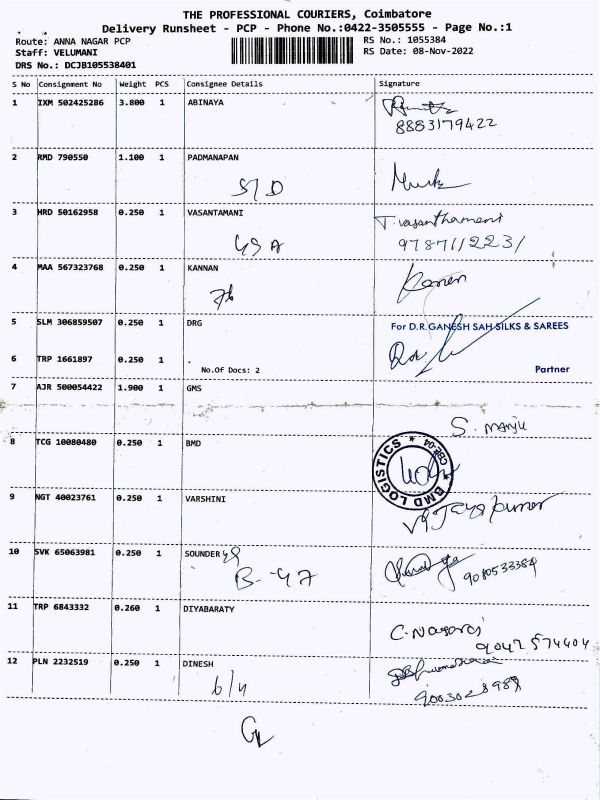 THE PROFESSIONAL COURIERS, Coimbatore
Delivery Runsheet - PCP - Phone No.:0422-3505555 - Page No.:1
Route: ANNA NAGAR PCP
RS No.: 1055384
Staff: VELUMANI
RS Date: 08-Nov-2022
DRS No.: DCJB105538401
S No Consignment No Weight PCS Consignee Details Signature
1 IXM 502425286 3.800 1 ABINAYA
8883179422
2 RMD 790550 1.100 1 PADMANAPAN
S/D
3 HRD 50162958 0.250 1 VASANTAMANI T. vasanthamani
9787112231
4 MAA 567323768 0.250 1 KANNAN
5 SLM 306859507 0.250 1 DRG For D.R.GANESH SAH SILKS & SAREES
6 TRP 1661897 0.250 1 .
No.Of Docs: 2 Partner
7 AJR 500054422 1.900 1 GMS
S. MANJU
8 TCG 10080480 0.250 1 BMD BMD LOGISTICS ★ CBE-04 ★
9 NGT 40023761 0.250 1 VARSHINI
10 SVK 65063981 0.250 1 SOUNDER
11 TRP 6843332 0.260 1 DIYABARATY
C. Nagaraj
9042574404
12 PLN 2232519 0.250 1 DINESH